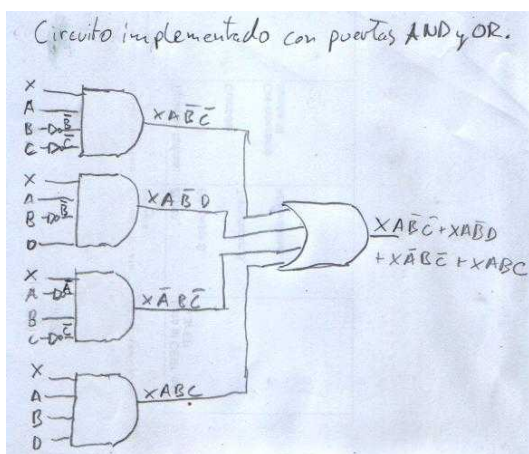 Circuito implementado con puertas AND y OR.
X
A
B B̅
C C̅
XAB̅C̅
X
A
B B̅
D
XAB̅D
X
A A̅
B
C C̅
XA̅BC̅
X
A
B
D
XABC
XAB̅C̅+XAB̅D
+XA̅BC̅+XABC